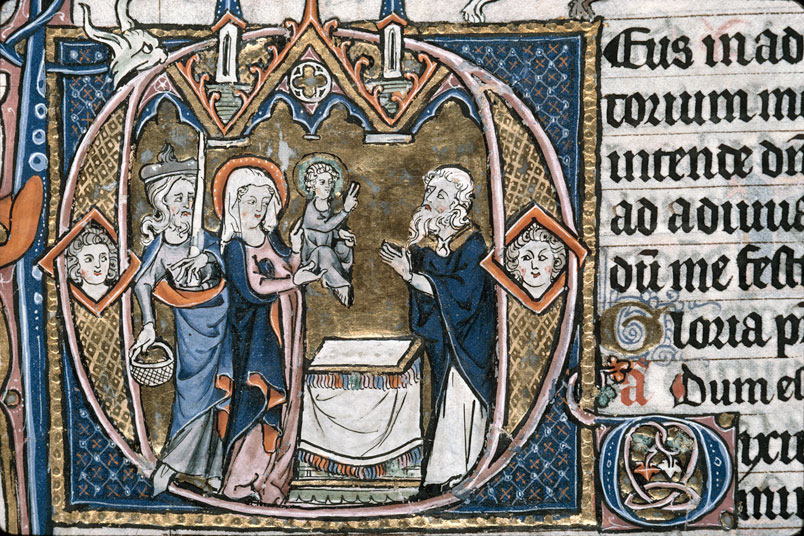 Eus in ad
torium m
intende dn̄
ad adiuu
dū me fest
Gloria p
a Dum es
Dixit